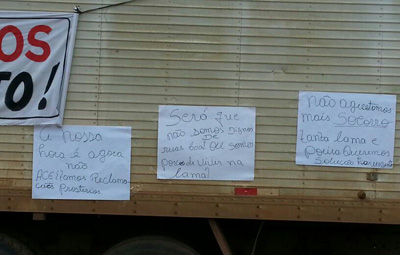 OS
TO!
A nossa
hora é agora
não
ACEITAMOS Reclama
Será que
não somos Dignos
DE
ruas boa! OU somos
porco di Vivir na
lama!
não aguentamos
mais SOCORRO
tanta lama e
poeira Queremos
Solucao